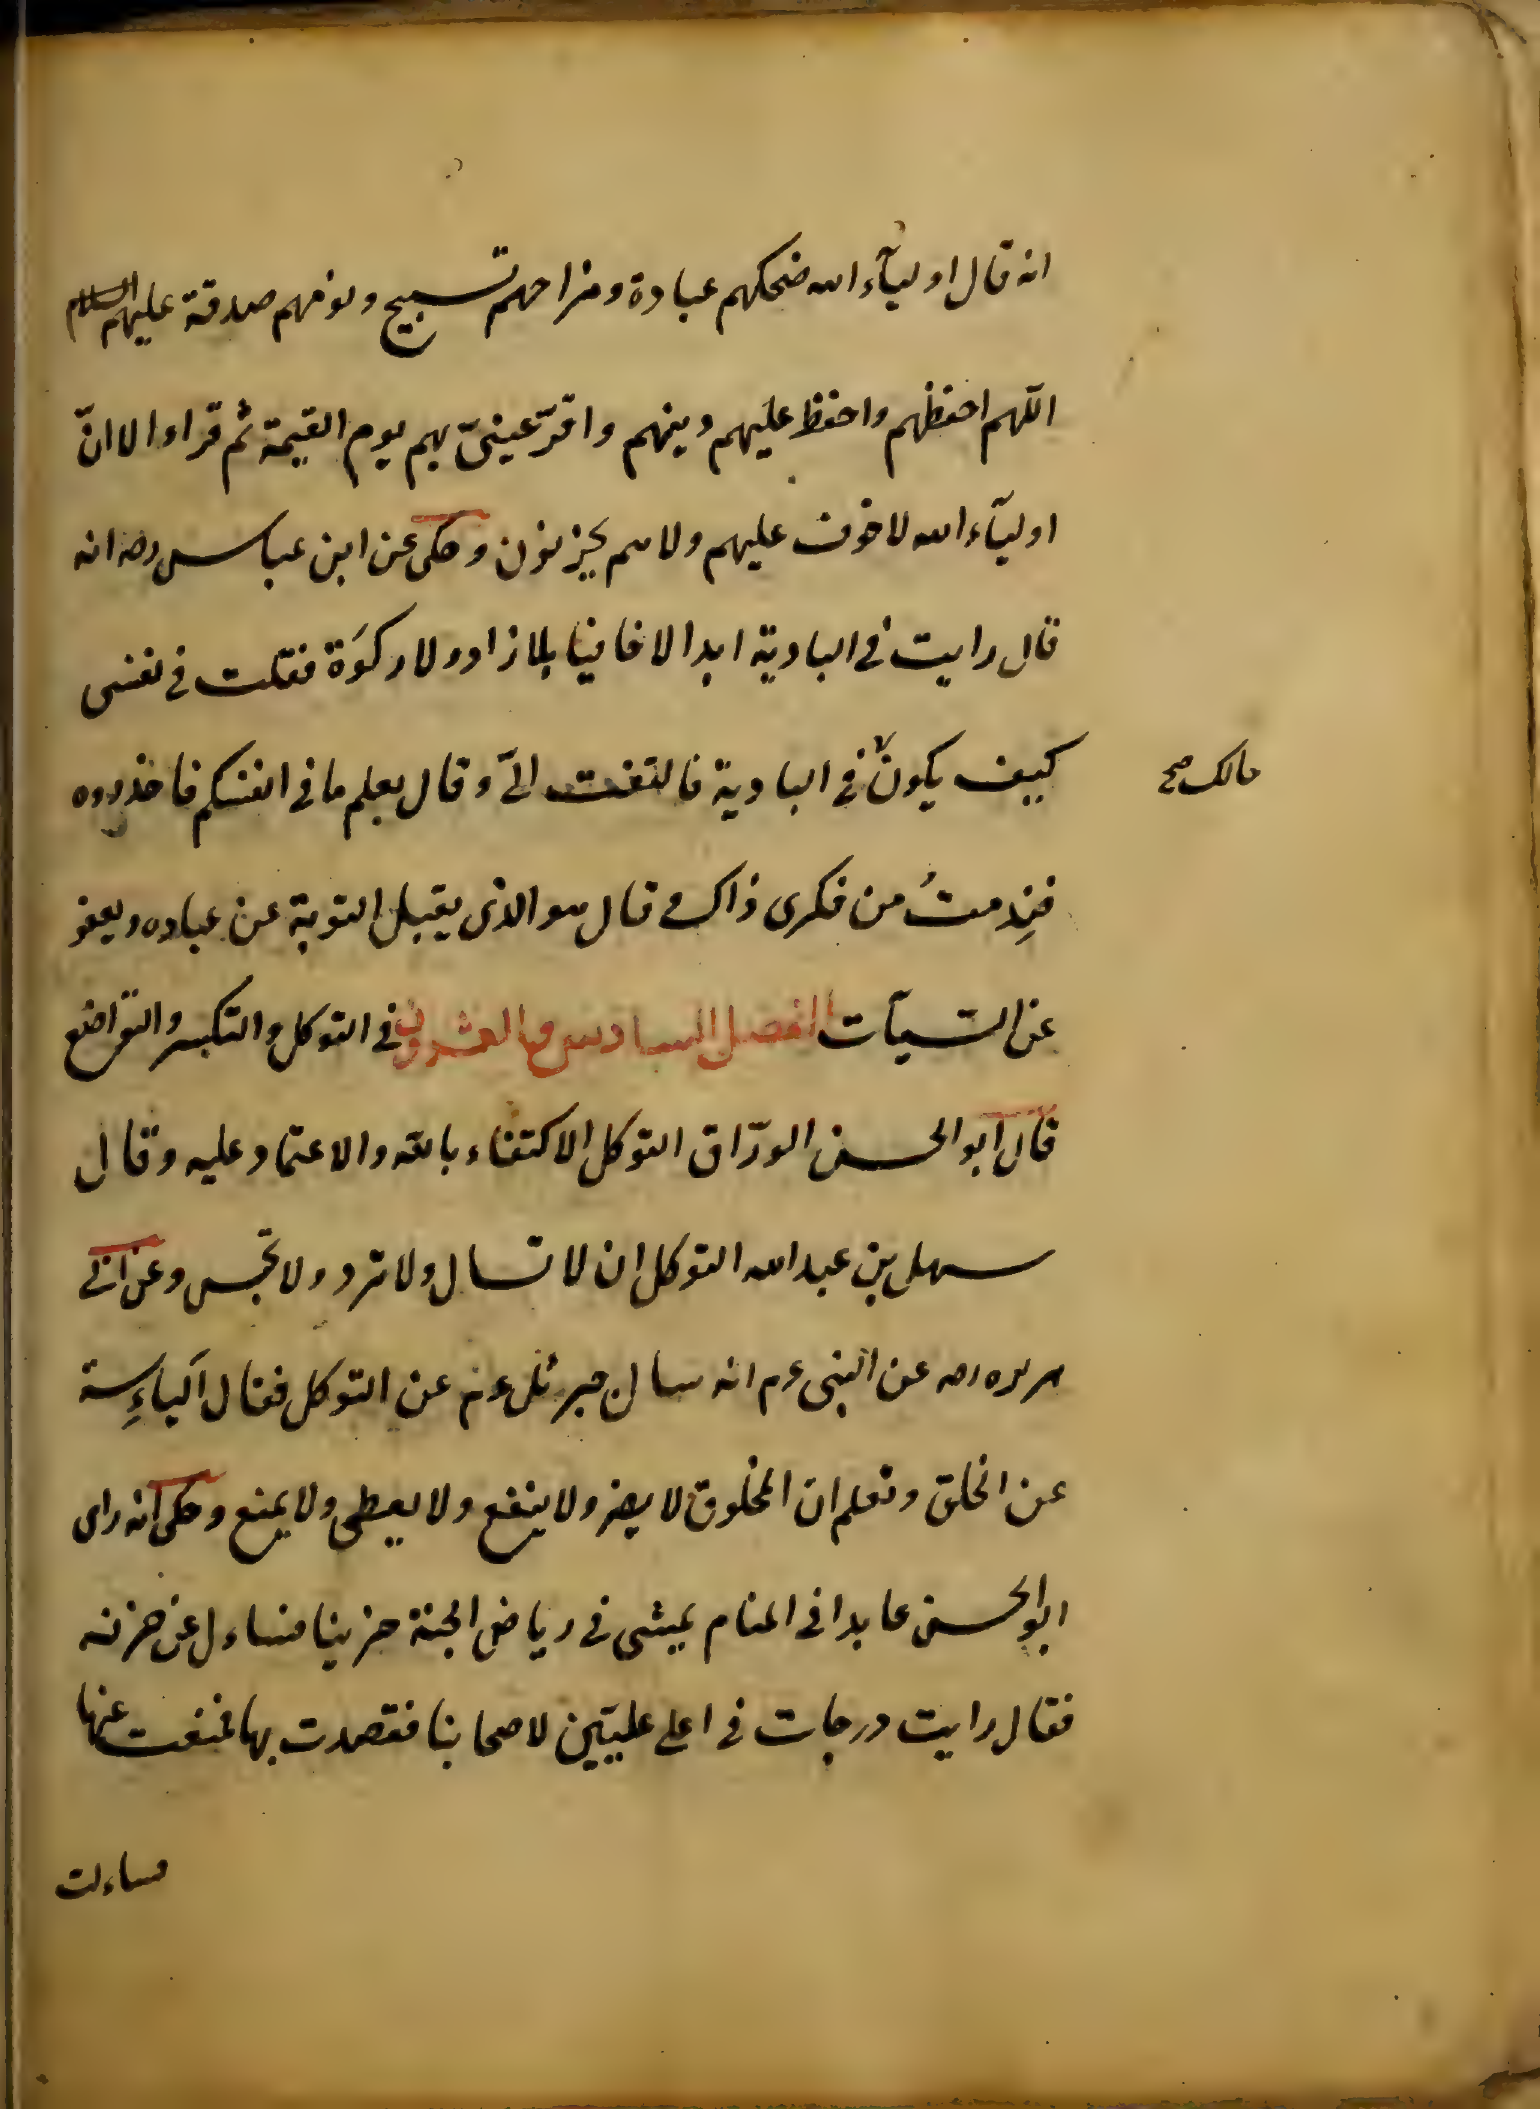 انه قال اوليآء الله ضحكهم عبادة ومزاحهم تسبيح ونومهم صدقة عليهم السلام
اللهم احفظهم واحفظ عليهم دينهم واقرّ عينىّ بهم يوم القيمة ثم قراء الا انّ
اوليآء الله لا خوف عليهم ولا هم يحزنون وحكى عن ابن عباس رضه انه
قال رايت فى البادية ابدالا فانيا بلا زاد ولا ركوَة فقلت فى نفسى
كيف يكون فى البادية فالتفت الىّ وقال يعلم ما فى انفسكم فاحذروه
مالك صح
فنِدمتُ من فكرى ذاك وقال هو الذى يقبل التوبة عن عباده ويعفو
عن السيآت الفصل السادس والعشرون فى التوكل والتكبر والتواضع
قال ابو الحسن الورّاق التوكل الاكتفاء بالله والاعتماد عليه وقال
سهل بن عبد الله التوكل ان لا تسال ولا ترد ولا تحبس وعن ابى
هريره رضه عن النبى عم انه سال جبرئل عم عن التوكل فقال اليأسة
عن الخلق وتعلم ان المخلوق لا يضر ولا ينفع ولا يعطى ولا يمنع وحكى انه راى
ابو الحسن عابدا فى المنام يمشى فى رياض الجنة حزينا فساءل عن حزنه
فقال رايت درجات فى اعلى عليّين لاصحابنا فقصدت بها فمنعت عنها
فساءلت